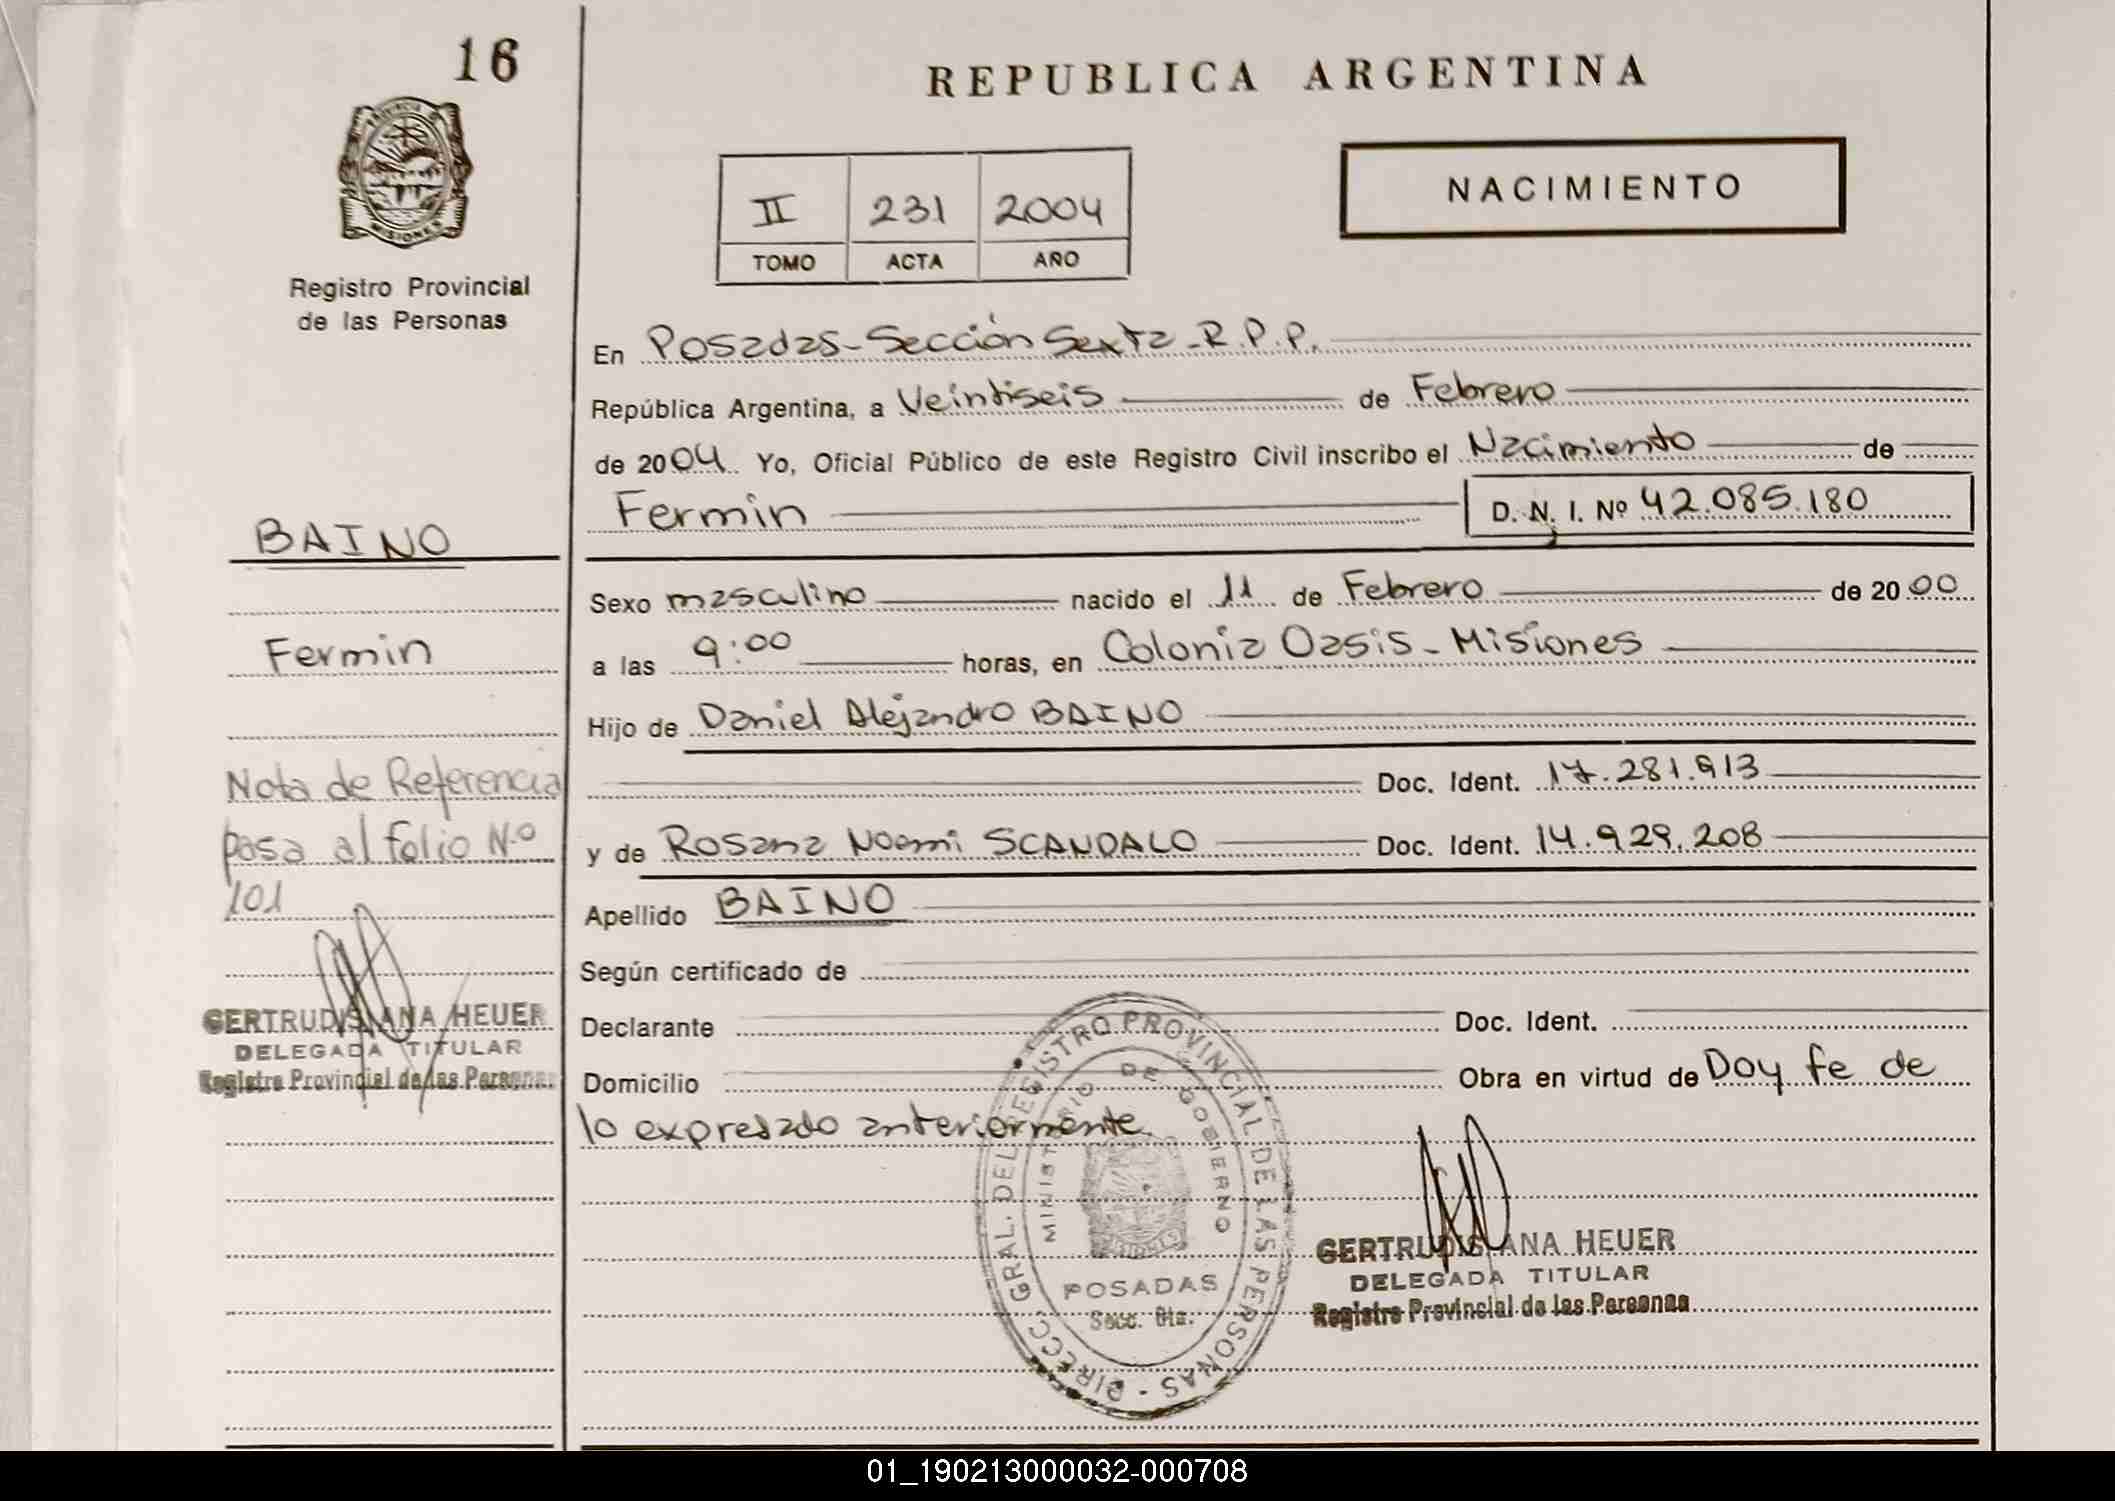 16
PROVINCIA
MISIONES
Registro Provincial
de las Personas
BAINO
Fermin
Nota de Referencia
pasa al folio N.º
101
GERTRUDIS ANA HEUER
DELEGADA TITULAR
Registro Provincial de las Personas
REPUBLICA ARGENTINA
II 231 2004
TOMO ACTA AÑO
NACIMIENTO
En Posadas-Sección Sexta-R.P.P.
República Argentina, a Veintiseis de Febrero
de 2004 Yo, Oficial Público de este Registro Civil inscribo el Nacimiento de
Fermin D. N. I. Nº 42.085.180
Sexo masculino nacido el 11 de Febrero de 2000
a las 9:00 horas, en Colonia Oasis-Misiones
Hijo de Daniel Alejandro BAINO
Doc. Ident. 17.281.913
y de Rosana Noemi SCANDALO Doc. Ident. 14.929.208
Apellido BAINO
Según certificado de
Declarante Doc. Ident.
Domicilio Obra en virtud de Doy fe de
lo expresado anteriormente.
DIRECC. GRAL. DEL REGISTRO PROVINCIAL DE LAS PERSONAS
MINISTERIO DE GOBIERNO
POSADAS
Secc. 6ta.
GERTRUDIS ANA HEUER
DELEGADA TITULAR
Registro Provincial de las Personas
01_190213000032-000708